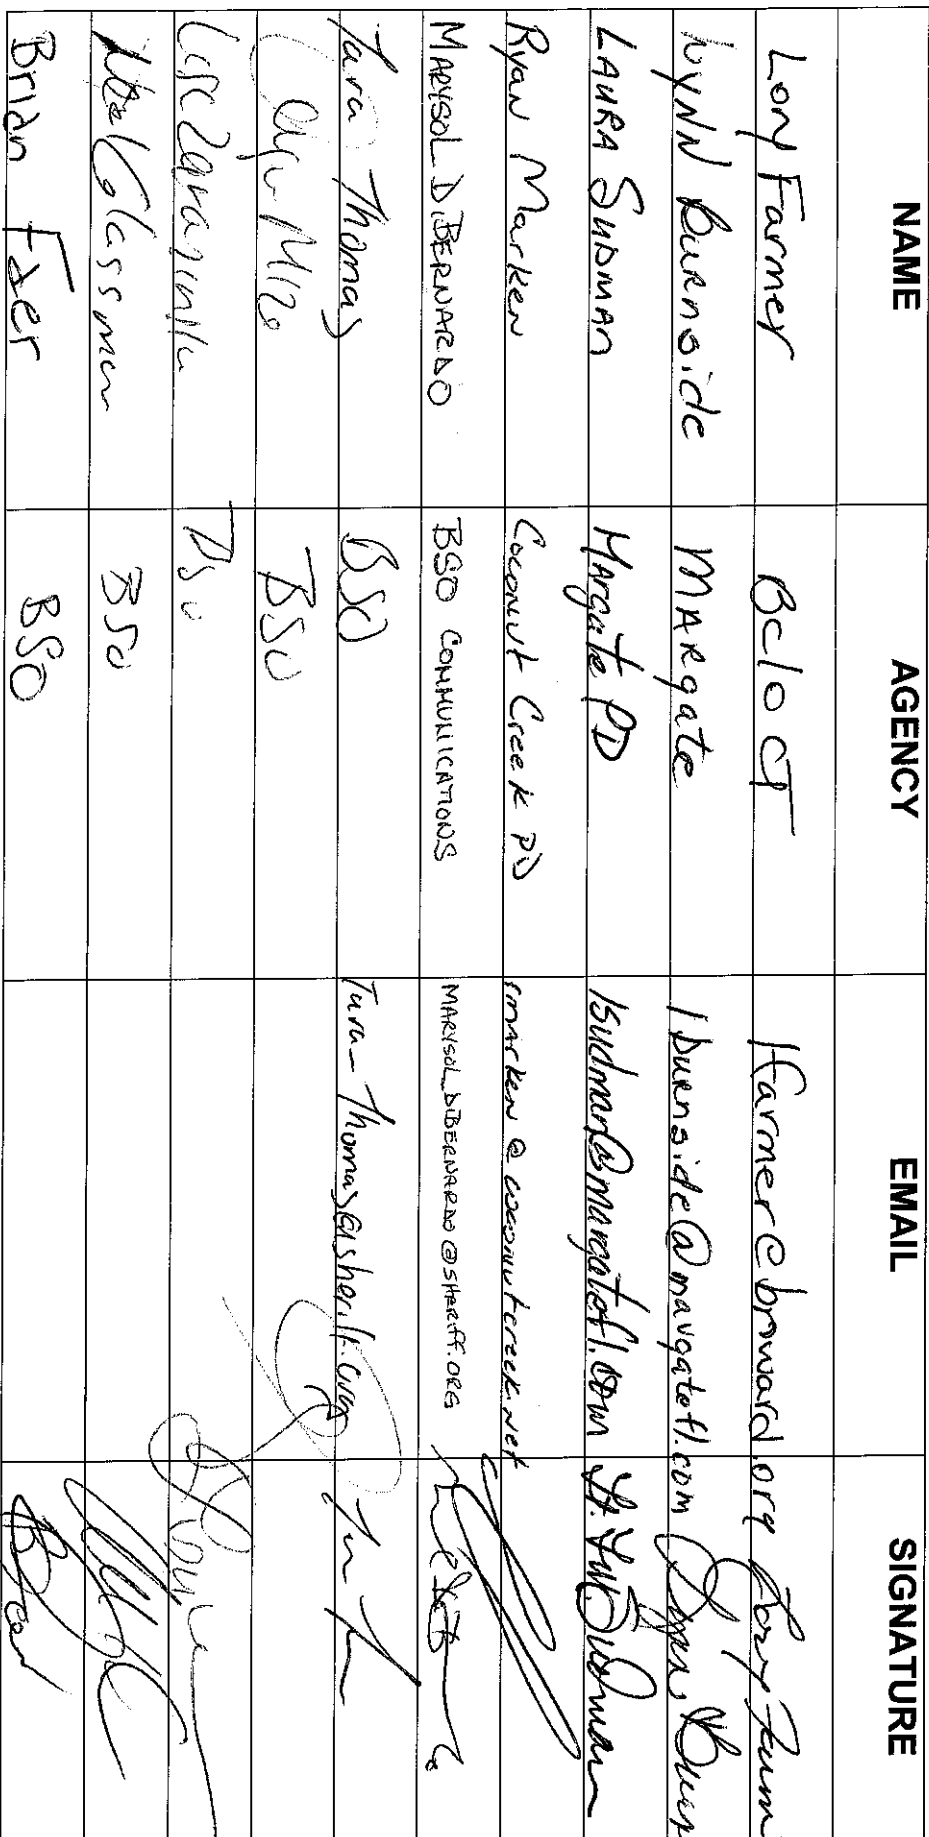 NAME AGENCY EMAIL SIGNATURE
Lory Farmer BC/OCT lfarmer@broward.org Lory Farm
Lynn Burnside Margate lburnside@margatefl.com Lynn Burn
Laura Sudman Margate PD lsudman@margatefl.com Lt. Sudman
Ryan Marken Coconut Creek PD rmarken@coconutcreek.net
MARYSOL DIBERNARDO BSO COMMUNICATIONS MARYSOL_DIBERNARDO@SHERIFF.ORG
Tara Thomas BSO Tara_Thomas@sheriff.org
BSO
Lisa Zarazinski BSO
Glassman BSO
Brian Faer BSO